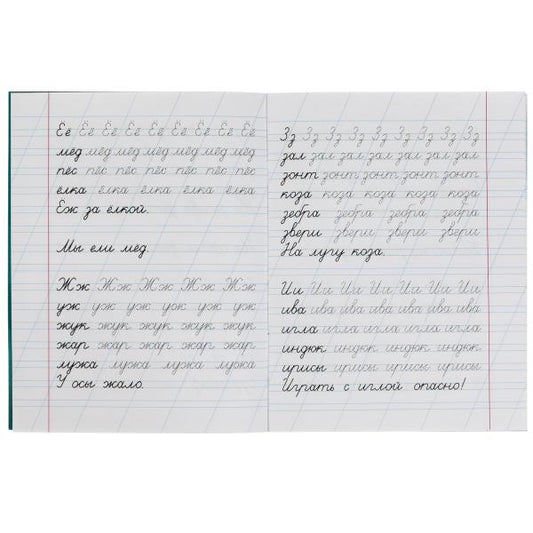 Ёё Ёё Ёё Ёё Ёё Ёё Ёё Ёё Ёё
мёд мёд мёд мёд мёд мёд мёд
пёс пёс пёс пёс пёс пёс пёс
ёлка ёлка ёлка ёлка ёлка
Ёж за ёлкой.
Мы ели мёд.
Жж Жж Жж Жж Жж Жж
уж уж уж уж уж уж
жук жук жук жук жук жук
жар жар жар жар жар жар
лужа лужа лужа лужа
У осы жало.
Зз Зз Зз Зз Зз Зз Зз Зз Зз
зал зал зал зал зал зал зал
зонт зонт зонт зонт зонт
коза коза коза коза коза
зебра зебра зебра зебра
звери звери звери звери
На лугу коза.
Ии Ии Ии Ии Ии Ии Ии
ива ива ива ива ива ива ива
игла игла игла игла игла
индюк индюк индюк индюк
ирисы ирисы ирисы ирисы
Играть с иглой опасно!